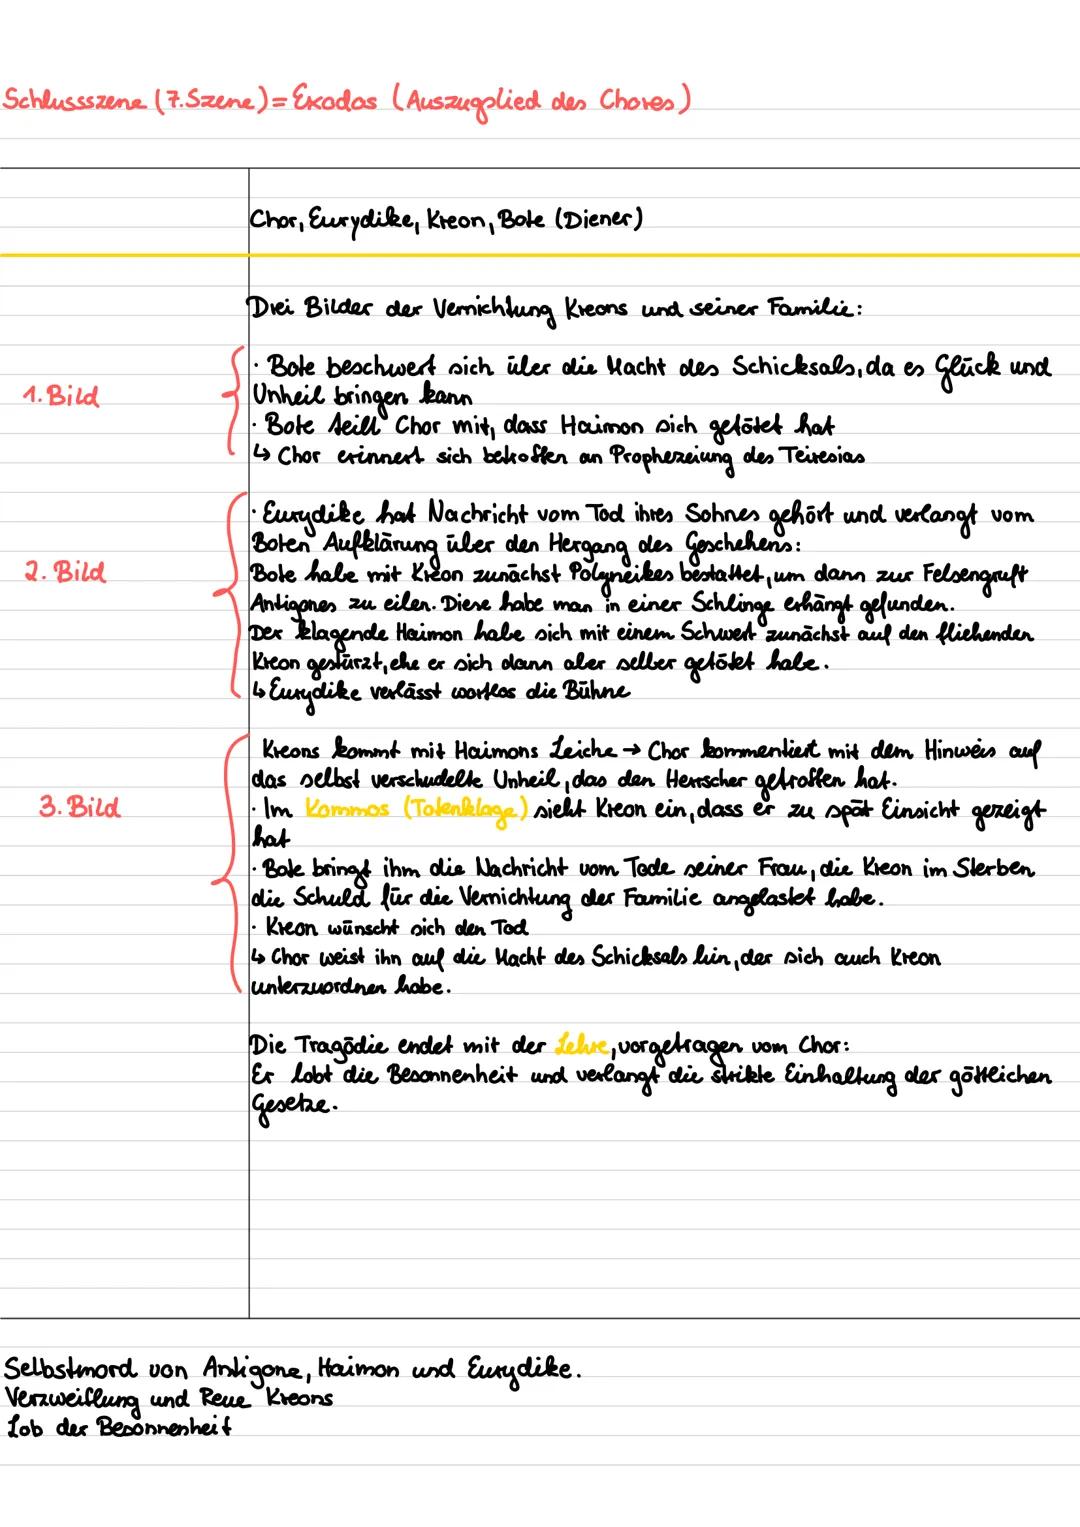 Schlussszene (7.Szene) = Exodos (Auszugslied des Chores)
Chor, Eurydike, Kreon, Bote (Diener)
Drei Bilder der Vernichtung Kreons und seiner Familie:
1. Bild
· Bote beschwert sich über die Macht des Schicksals, da es Glück und
Unheil bringen kann
· Bote teilt Chor mit, dass Haimon sich getötet hat
↳ Chor erinnert sich betroffen an Prophezeiung des Teiresias
2. Bild
· Eurydike hat Nachricht vom Tod ihres Sohnes gehört und verlangt vom
Boten Aufklärung über den Hergang des Geschehens:
Bote habe mit Kreon zunächst Polyneikes bestattet, um dann zur Felsengruft
Antigones zu eilen. Diese habe man in einer Schlinge erhängt gefunden.
Der klagende Haimon habe sich mit einem Schwert zunächst auf den fliehenden
Kreon gestürzt, ehe er sich dann aber selber getötet habe.
↳ Eurydike verlässt wortlos die Bühne
3. Bild
Kreons kommt mit Haimons Leiche → Chor kommentiert mit dem Hinweis auf
das selbst verschudelte Unheil, das den Herrscher getroffen hat.
· Im Kommos (Totenklage) sieht Kreon ein, dass er zu spät Einsicht gezeigt
hat
· Bote bringt ihm die Nachricht vom Tode seiner Frau, die Kreon im Sterben
die Schuld für die Vernichtung der Familie angelastet habe.
· Kreon wünscht sich den Tod
↳ Chor weist ihn auf die Macht des Schicksals hin, der sich auch Kreon
unterzuordnen habe.
Die Tragödie endet mit der Lehre, vorgetragen vom Chor:
Er lobt die Besonnenheit und verlangt die strikte Einhaltung der göttlichen
Gesetze.
Selbstmord von Antigone, Haimon und Eurydike.
Verzweiflung und Reue Kreons
Lob der Besonnenheit